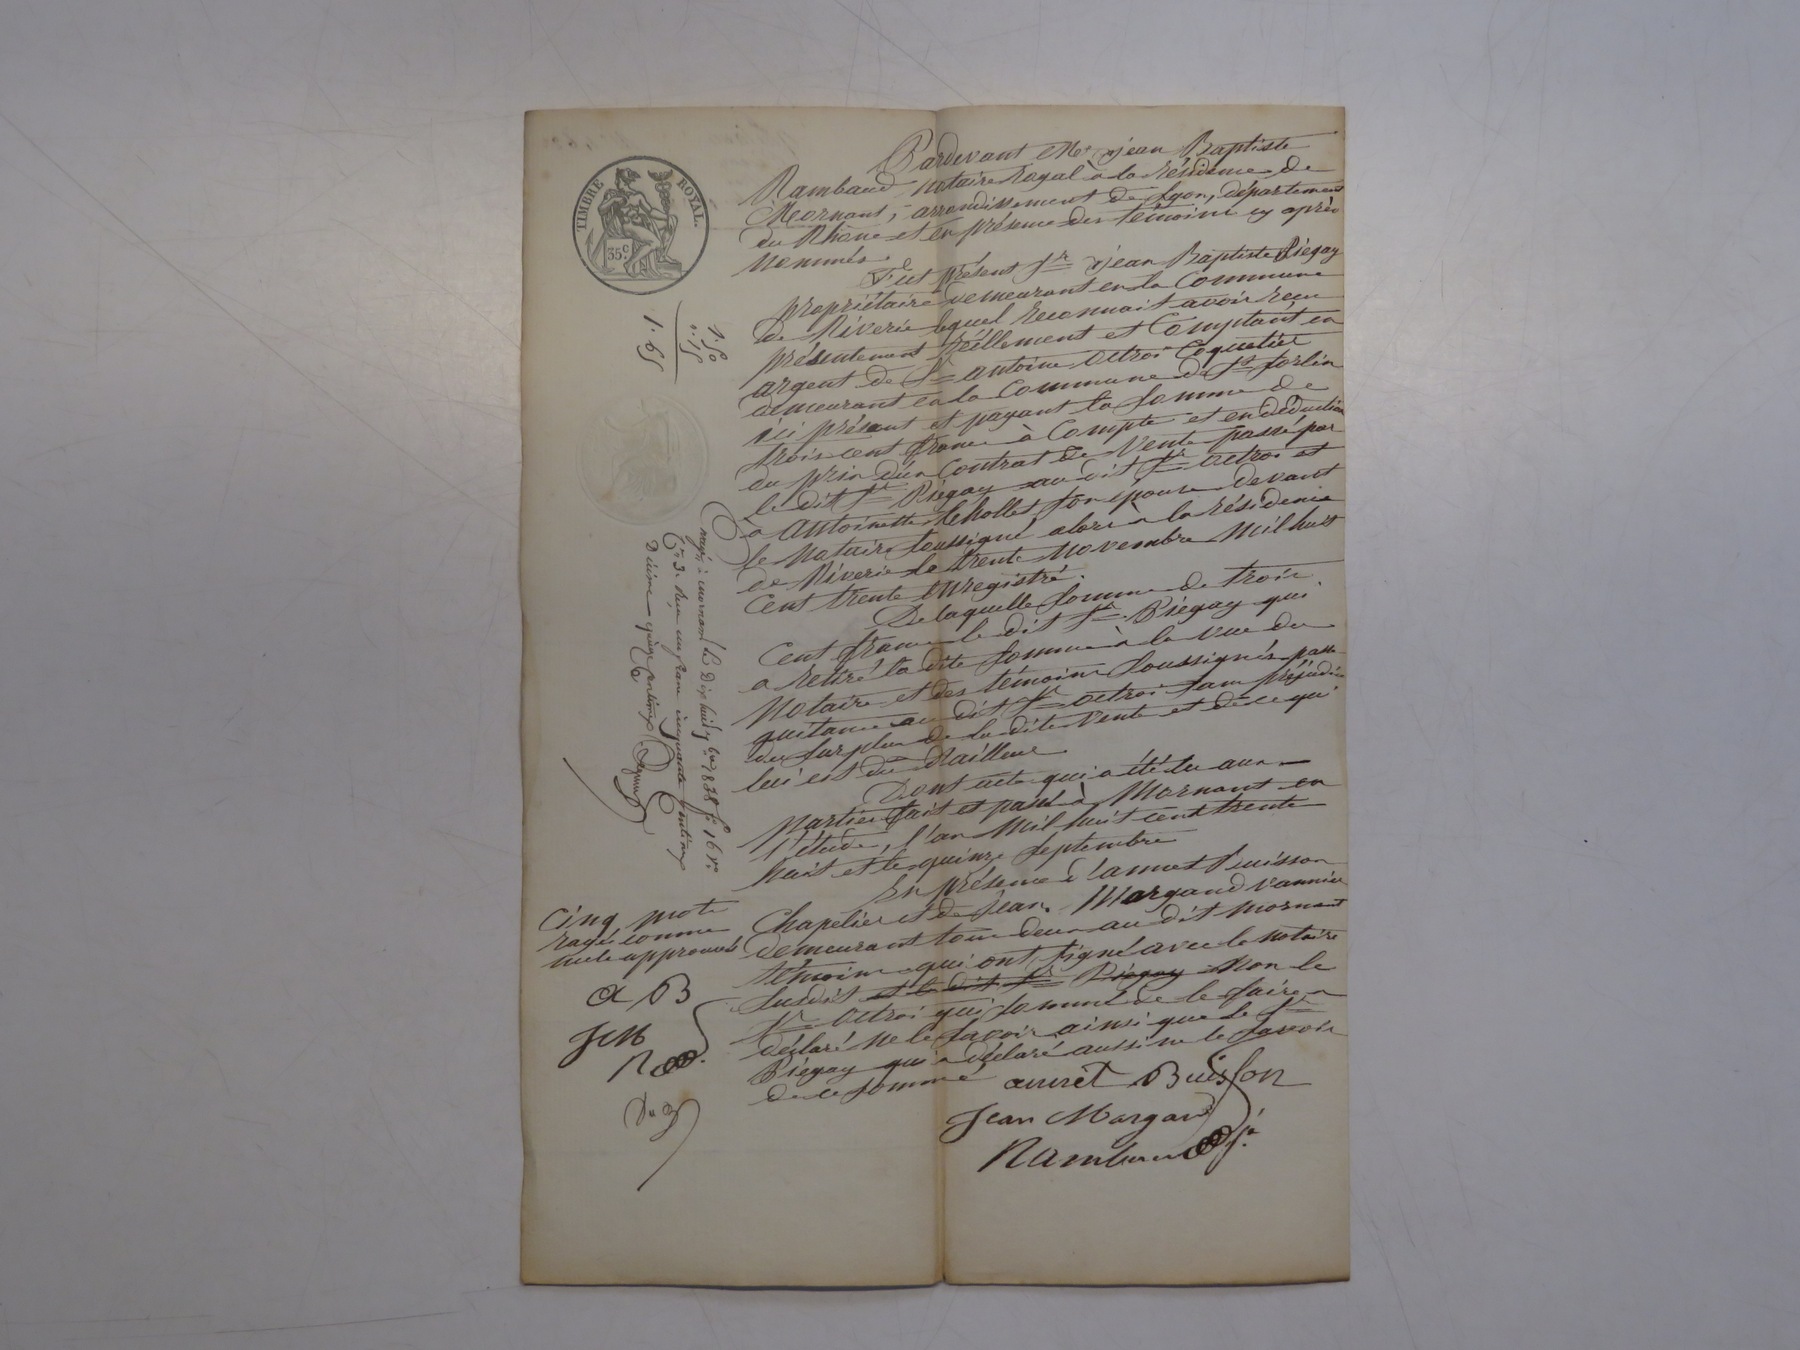 TIMBRE ROYAL.
35 c.
Pardevant Me. Jean Baptiste
Rambaud notaire Royal à la résidence de
Mornant, arrondissement de Lyon, département
du Rhône et en présence des témoins cy après
nommés.
Fut présent Sr. Jean Baptiste Piégay
propriétaire demeurant en la Commune
de Riverie lequel reconnait avoir reçu
présentement réellement et Comptant en
argent de Sr. antoine Octroi Coquetier
demeurant en la Commune de St. Sorlin
ici présent et payant la somme de
trois cent francs à Compte et en déduction
du prix d'un Contrat de Vente passé par
le dit Sr. Piégay au dit Sr. Octroi et
à Antoinette son épouse devant
le Notaire soussigné alors à la résidence
de Riverie le trente Novembre Mil huit
Cent trente enregistré.
De laquelle somme de trois
Cent francs le dit Sr. Piégay qui
a retiré la dite somme à la vue du
Notaire et des témoins soussignés passe
quitance au dit Sr. Octroi sans préjudice
du surplus de la dite Vente et de ce qui
lui est du d'ailleurs
Dont acte qui a été lu aux
parties fait et passé à Mornant en
l'étude, l'an Mil huit cent trente
huit et le quinze septembre
En présence d'annet Buisson
Chapelier et de Jean Margand vannier
demeurant tous deux au dit Mornant
témoins qui ont signé avec le notaire
susdit et le dit Sr. Piégay Non le
Sr. Octroi qui sommé de le faire a
déclaré ne le savoir ainsi que le Sr.
Piégay qui a déclaré aussi ne le savoir
de ce sommé
annet Buisson
Jean Margand
Rambaud
1. 50
0. 15
1. 65
à mornant le Dix huit 7bre 1838 fo. 16 vo.
Co. 3. reçu un franc cinquante Centimes
Décime quinze centimes
Cinq mots
rayés comme
nuls approuvés
a B
J M
R